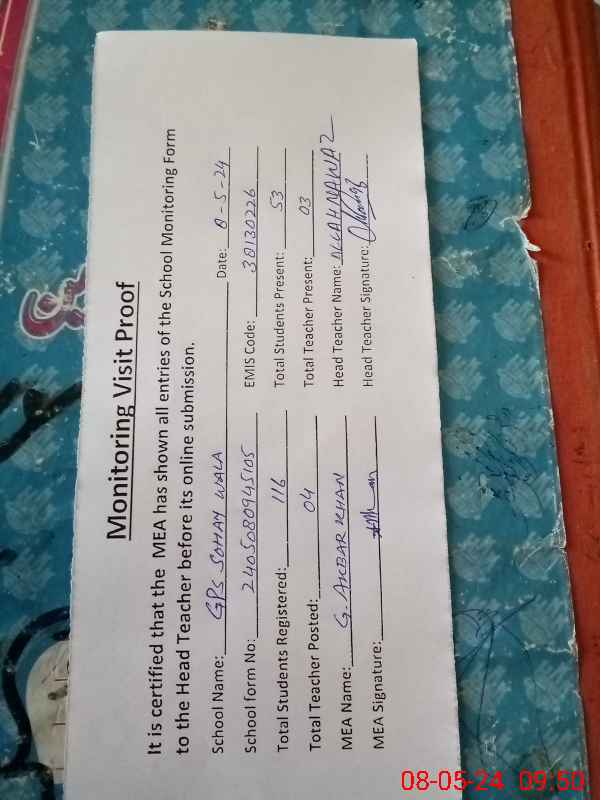 Monitoring Visit Proof
It is certified that the MEA has shown all entries of the School Monitoring Form
to the Head Teacher before its online submission.
School Name: GPS SOHAY WALA Date: 8-5-24
School form No: 2405080945105 EMIS Code: 38130226
Total Students Registered: 116 Total Students Present: 53
Total Teacher Posted: 04 Total Teacher Present: 03
MEA Name: G. AKBAR KHAN Head Teacher Name: ALLAH NAWAZ
MEA Signature: Head Teacher Signature:
08-05-24 09:50